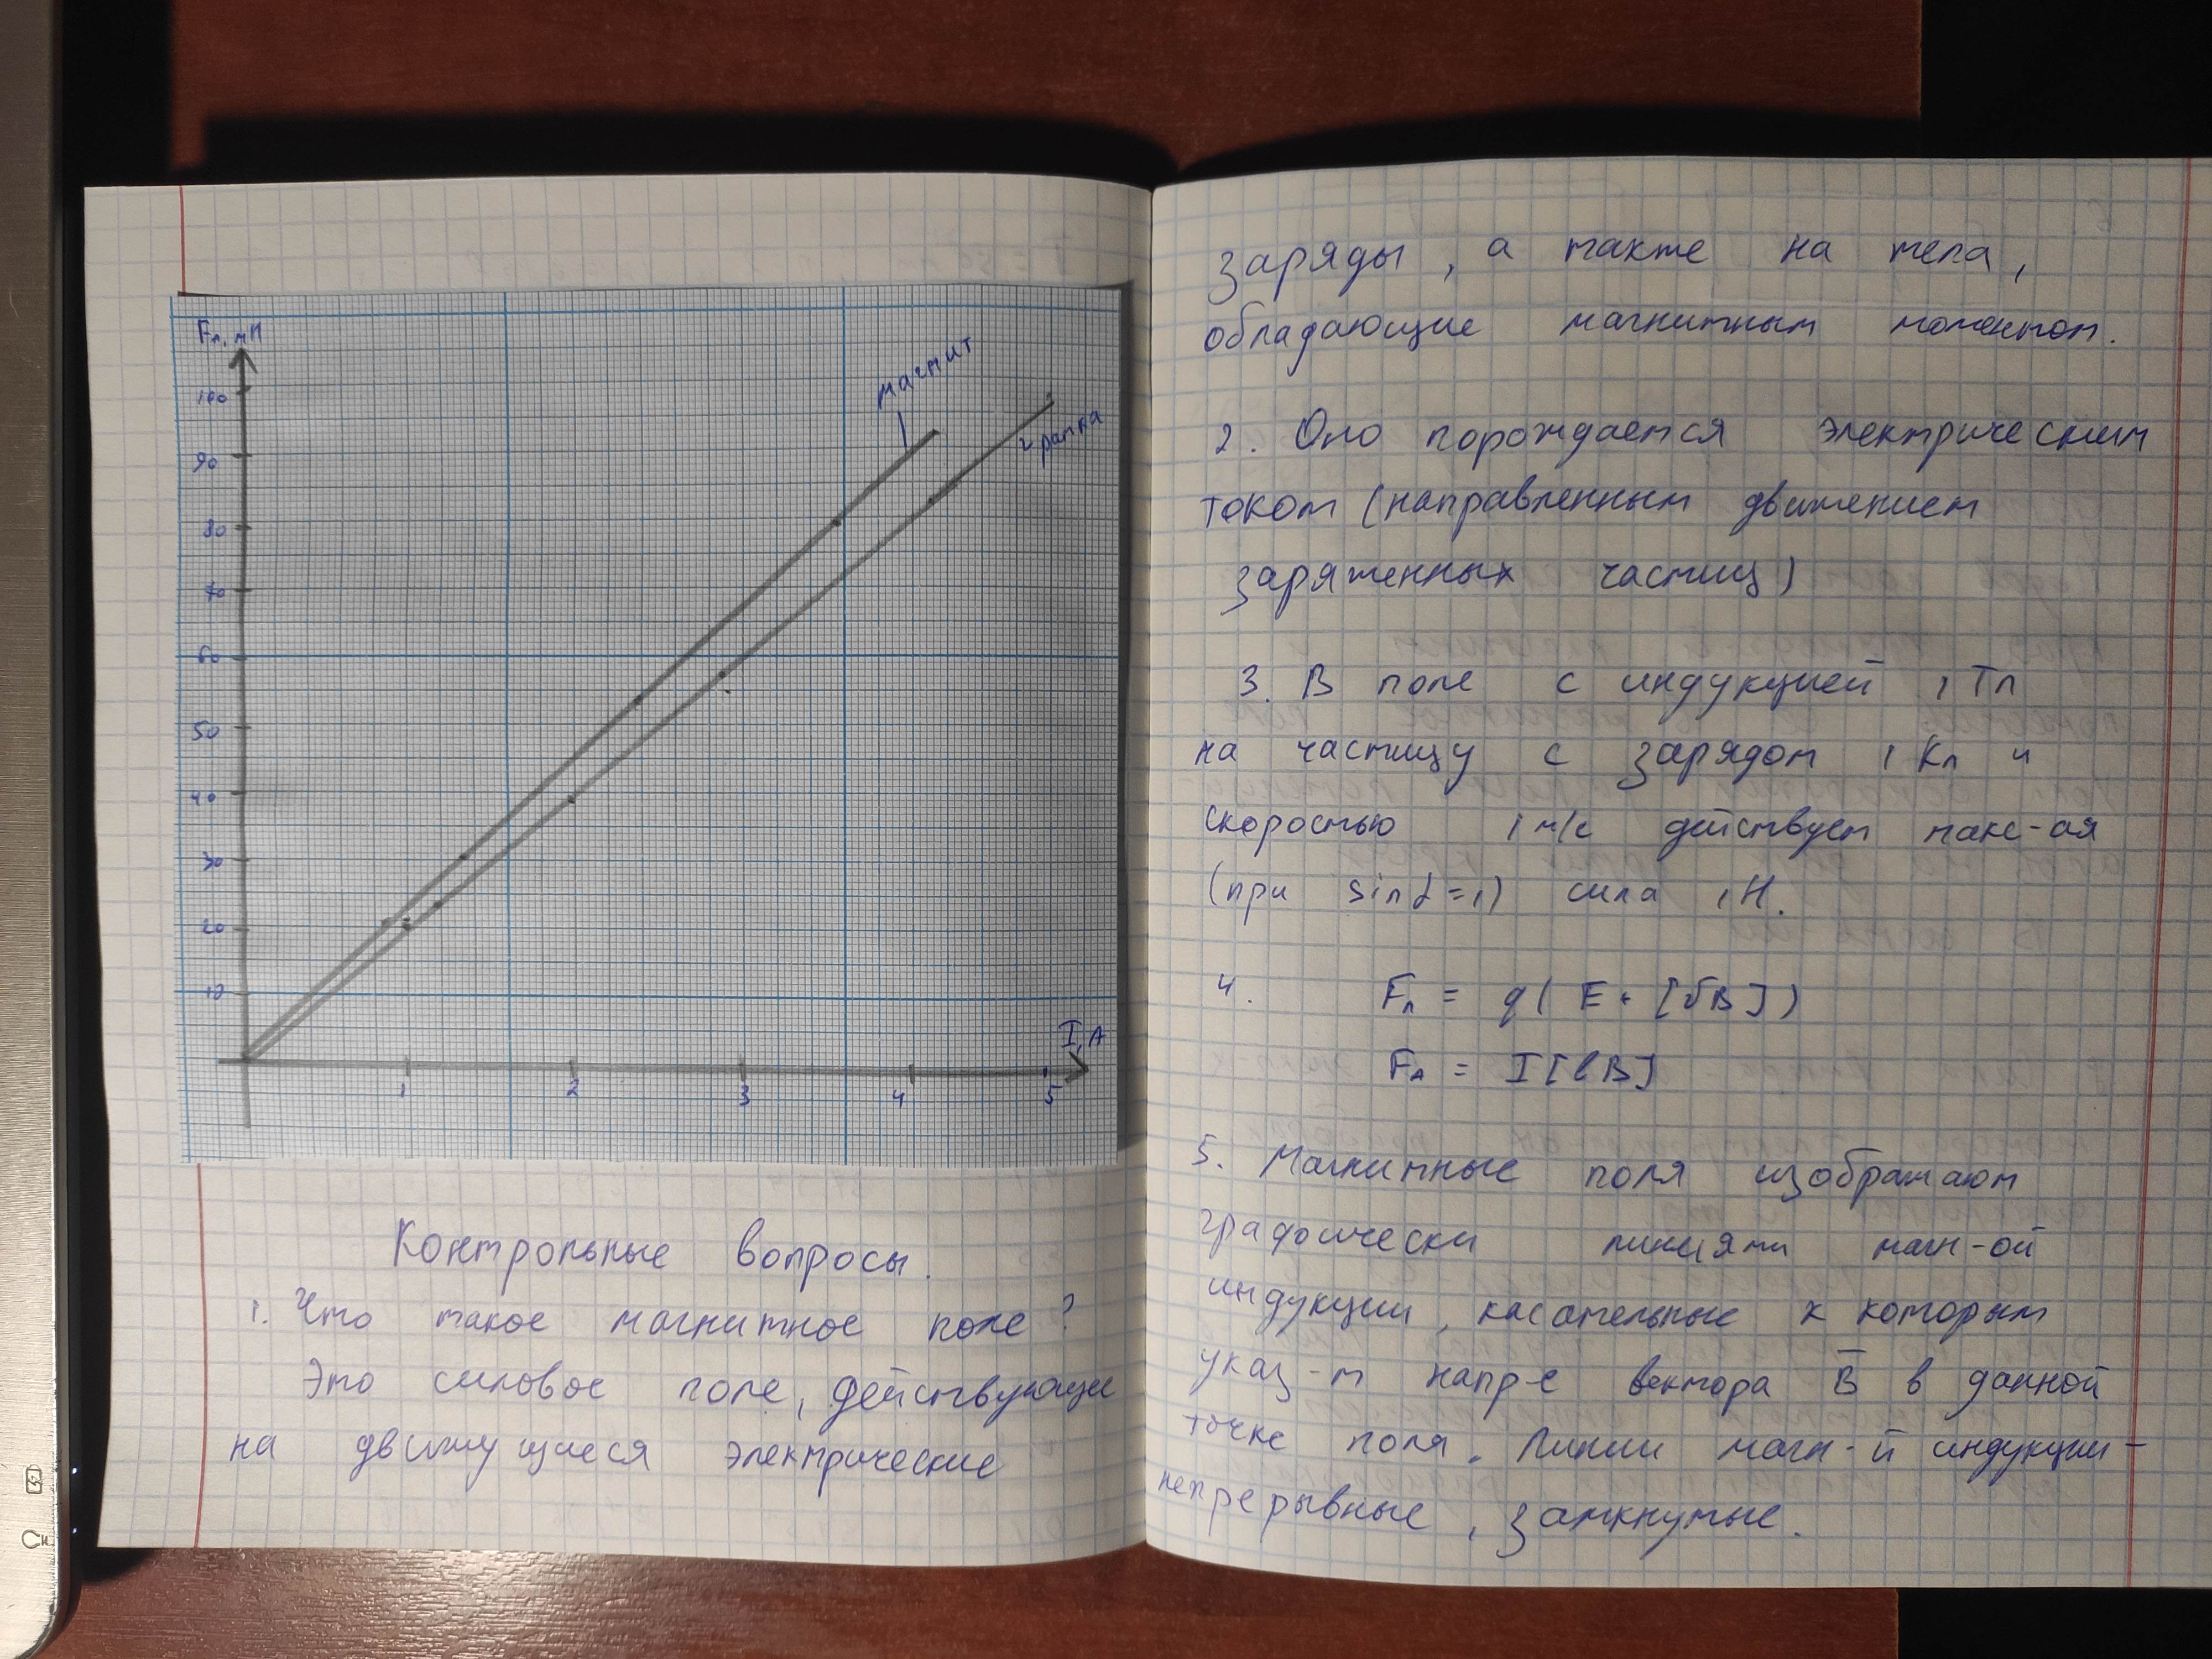 Fл, мН
100
90
80
70
60
50
40
30
20
10
магнит
рамка
I, А
1
2
3
4
5
Контрольные вопросы.
1. Что такое магнитное поле?
Это силовое поле, действующее
на движущиеся электрические
заряды, а также на тела,
обладающие магнитным моментом.
2. Оно порождается электрическим
током (направленным движением
заряженных частиц)
3. В поле с индукцией 1 Тл
на частицу с зарядом 1 Кл и
скоростью 1 м/с действует макс-ая
(при sin α = 1) сила 1 Н.
4. Fл = q( E + [υB])
FА = I[lB]
5. Магнитные поля изображают
графически линиями магн-ой
индукции, касательные к которым
указ-т напр-е вектора B̅ в данной
точке поля. Линии магн-й индукции -
непрерывные, замкнутые.